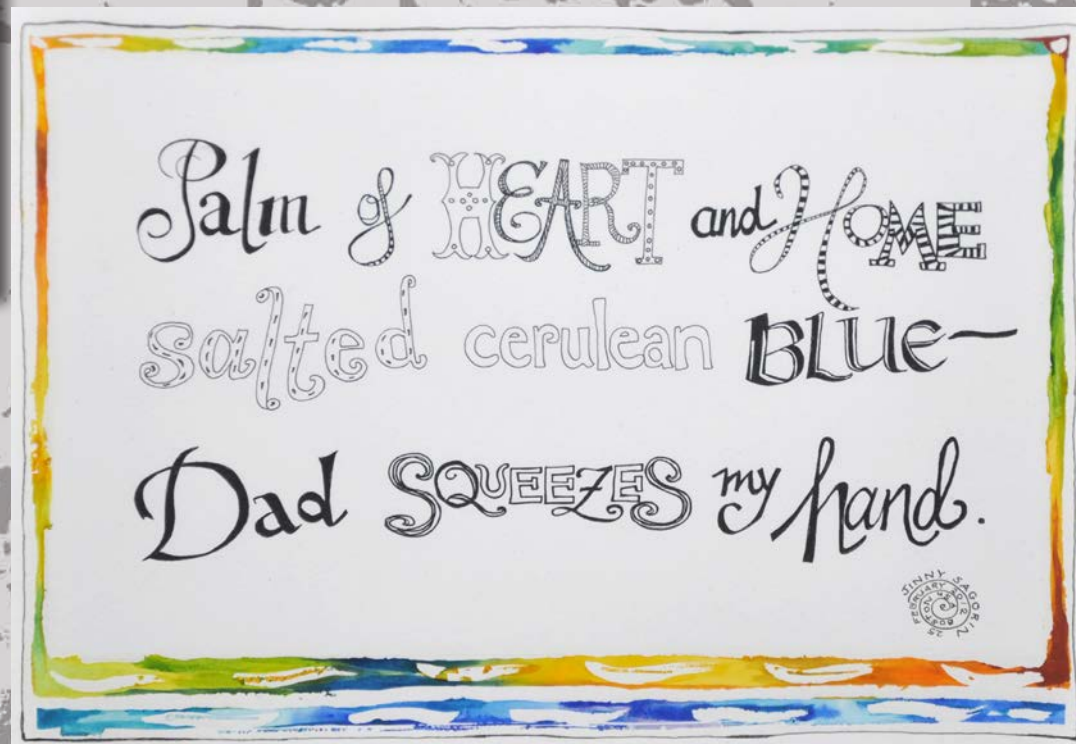 Palm of HEART and HOME
salted cerulean BLUE—
Dad SQUEEZES my hand.
JINNY SAGORIN
25 FEBRUARY 2012
BOSTON